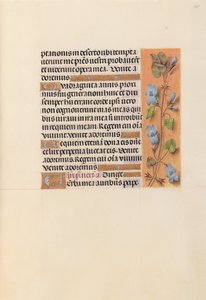 ptationis in deserto ubi tempta
uerunt me patres vestri probauerunt
et uiderunt opera mea. Venite a
doremus.
Quadraginta annis proxi
mus fui generationi huic et dixi
semper hi errant corde ipsi uero
non cognouerunt uias meas qui
bus iuraui in ira mea si introibūt
in requiem meam. Regem cui om̄ia
uiuunt. Venite adoremus.
Requiem eternā dona eis domine
et lux perpetua luceat eis. Venite
adoremus. Regem cui om̄ia uiuunt
venite adoremus.
Dirige
Verba mea auribus p̄cipe